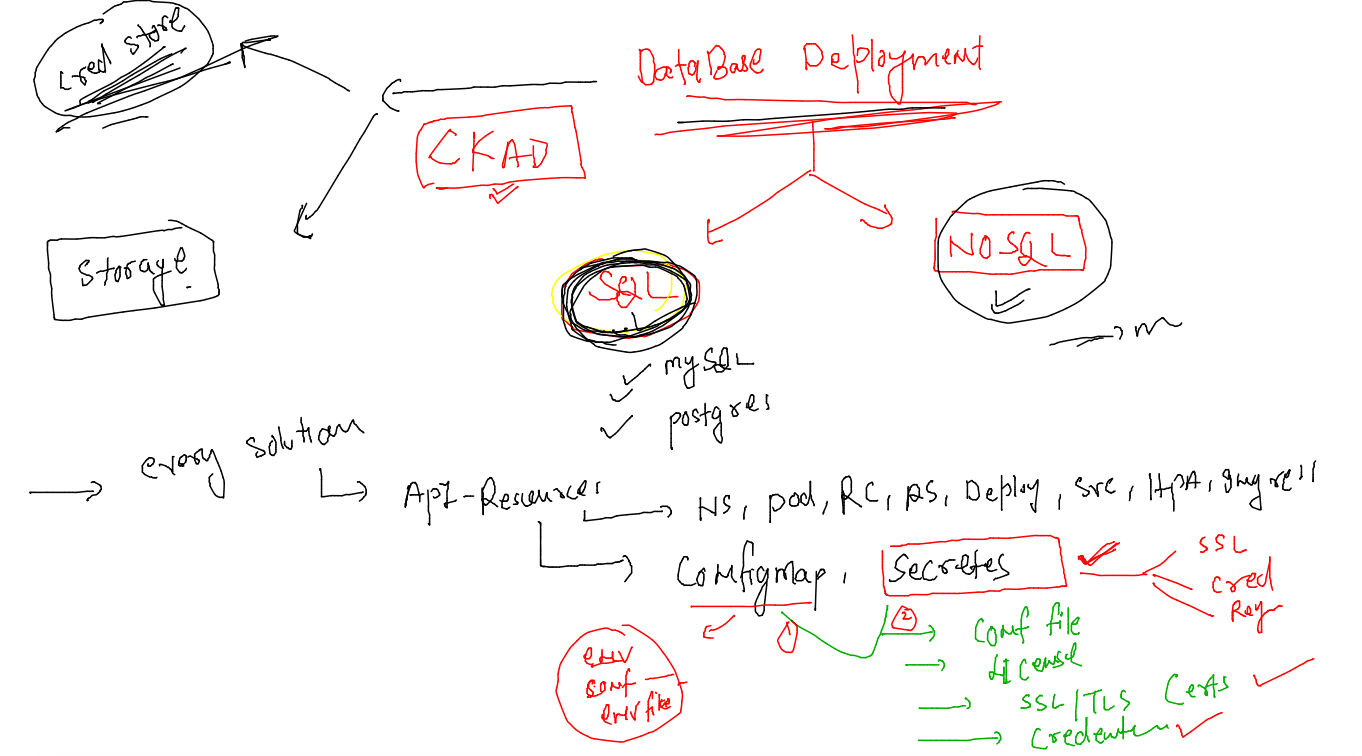 Cred store
DataBase Deployment
CKAD
Storage
SQL
NOSQL
m
mySQL
postgres
every solution
Api-Resources
NS, pod, RC, RS, Deploy, svc, HPA, ingress
Configmap, Secretes
SSL
cred
Reg
1
2
ENV
conf
env file
conf file
License
SSL/TLS Certs